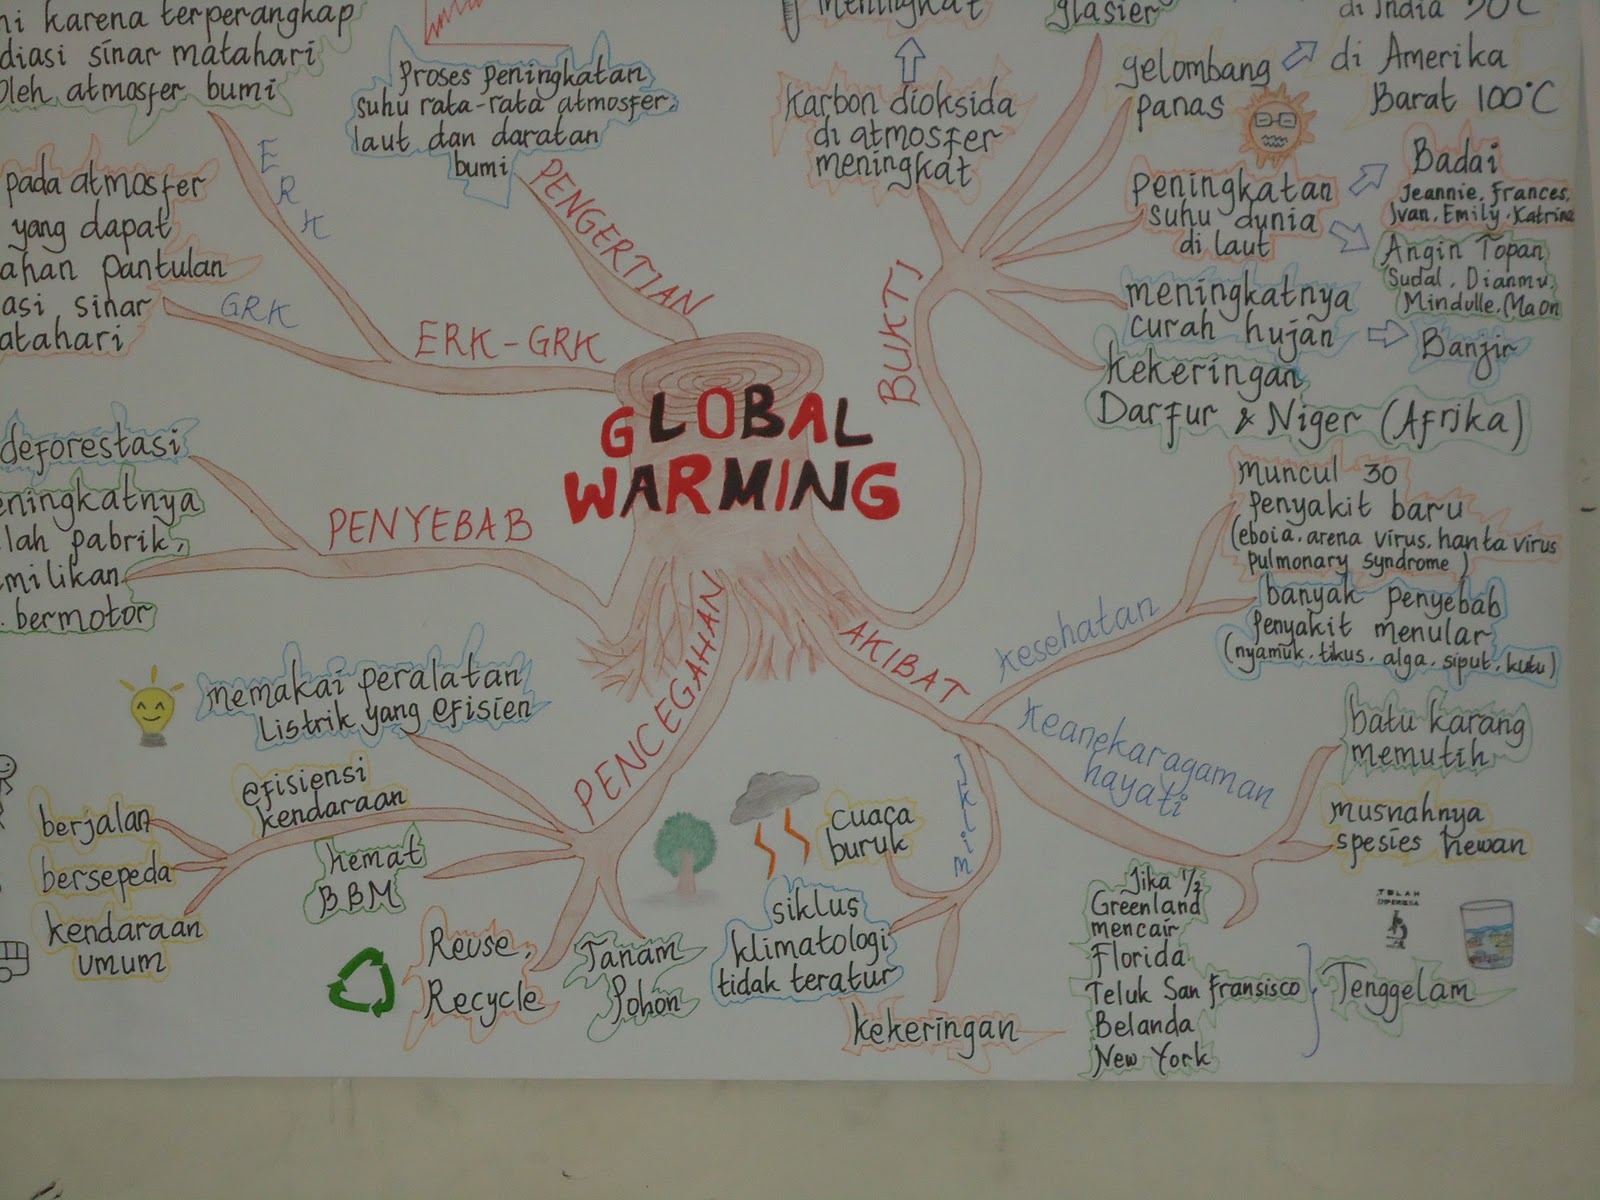 ni karena terperangkap
diasi sinar matahari
oleh atmosfer bumi
ERK
pada atmosfer
yang dapat
ahan pantulan
asi sinar
atahari
GRK
ERK-GRK
Proses peningkatan
suhu rata-rata atmosfer,
laut dan daratan
bumi
PENGERTIAN
GLOBAL
WARMING
meningkat
Karbon dioksida
di atmosfer
meningkat
BUKTI
glasier
gelombang
panas
di India 50°C
di Amerika
Barat 100°C
peningkatan
suhu dunia
di laut
Badai
Jeannie, Frances,
Ivan, Emily, Katrina
Angin Topan
Sudal, Dianmu,
Mindulle, Maon
meningkatnya
curah hujan
Banjir
kekeringan
Darfur & Niger (Afrika)
deforestasi
eningkatnya
lah pabrik,
milikan
bermotor
PENYEBAB
PENCEGAHAN
memakai peralatan
Listrik yang efisien
efisiensi
kendaraan
berjalan
bersepeda
kendaraan
umum
hemat
BBM
Reuse,
Recycle
Tanam
Pohon
AKIBAT
kesehatan
Muncul 30
Penyakit baru
(eboia, arena virus, hanta virus
pulmonary syndrome)
banyak penyebab
Penyakit menular
(nyamuk, tikus, alga, siput, kutu)
keanekaragaman
hayati
batu karang
memutih
musnahnya
spesies hewan
Jika ½
Greenland
mencair
Florida
Teluk San Fransisco
Belanda
New York
Tenggelam
TELAH
DIPERIKSA
Iklim
cuaca
buruk
siklus
klimatologi
tidak teratur
kekeringan